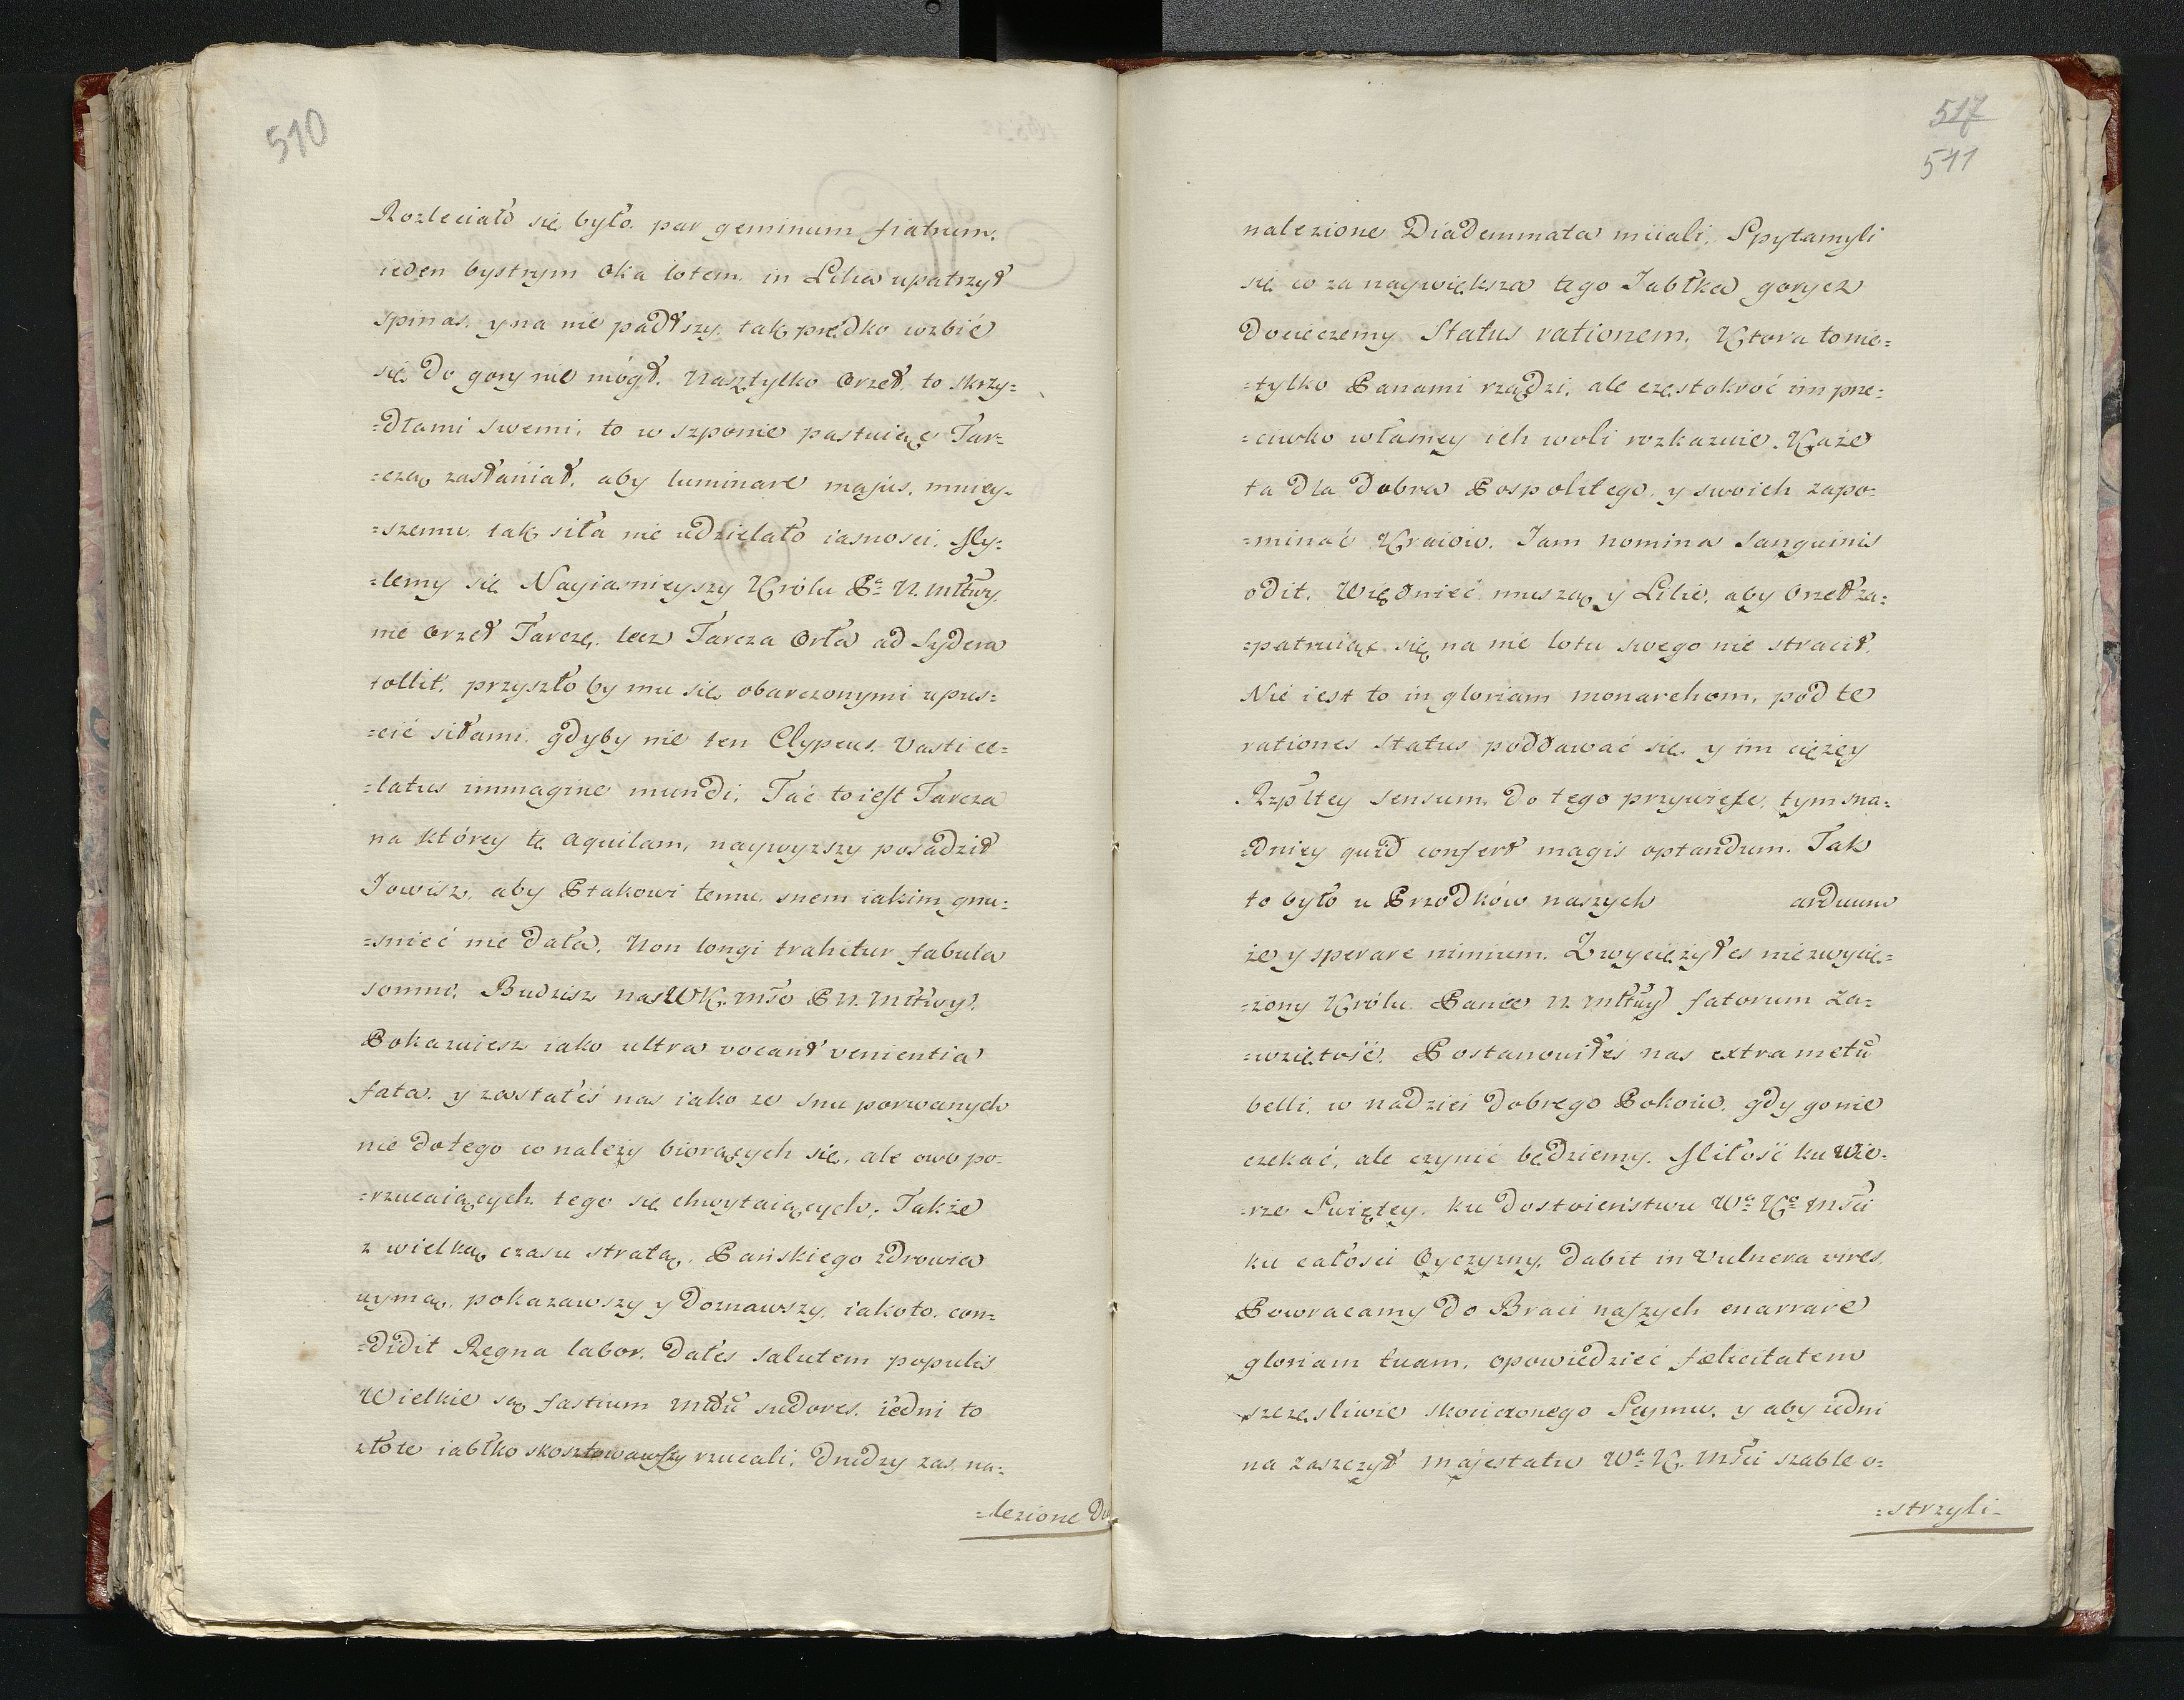 510
Rozleciało się było. par geminum fratrum.
ieden bystrym oka lotem. in Lilia upatrzył
spinas. y na nie padłszy, tak prędko wzbić
się do gory nie mógł. Nasz tylko Orzeł, to skrzy=
=dłami swemi, to w szponie pastuiąc Tar=
=czą zasłaniał, aby luminare majus, mniey=
=szemu. tak siła nie udzielało iasnosci. My=
=lemy się Nayiasnieyszy Królu Pe N. Młtwy
nie Orzeł Tarczę, lecz Tarcza Orła ad Sydera
tollit, przyszło by mu się obarczonymi upus=
=cić siłami, gdyby nie ten Clypeus. Vasti ce=
=latus immagine mundi. Tać to iest Tarcza
na którey tę aquilam, naywyzszy posadził
Jowisz, aby Ptakowi temu. snem iakim gnu=
=snieć nie dała. Non longi trahitur fabula
somni. Budzisz nas WK. Mśo P N. Młtwy.
Pokazuiesz iako ultra vocant venientia
fata. y zastałeś nas iako ze snu porwanych
nie do tego co należy biorących się, ale owo po=
=rzucaiących. tego się chwytaiących. Także
z wielką czasu stratą. Pańskiego zdrowia
uymą, pokazawszy y doznawszy, iako to. con=
=didit Regna labor. Dałes salutem populis
Wielkie są fastium sudores. iedni to
złote iabłko skosztowawszy rzucali. drudzy zas na=
=lezione Dia
517
511
nalezione Diademmata miiali. Spytamyli
się co za naywiększa tego Jabłka gorycz
docieczemy Status rationem. Ktora to nie=
=tylko Panami rządzi, ale częstokroć im prze=
=ciwko własney ich woli rozkazuie. Każe
ta dla dobra Pospolitego. y swoich zapo=
=minać Kraiow. Jam nomina sanguinis
odit. Więdnieć muszą y Lilie, aby Orzeł za=
=patruiąc się na nie lotu swego nie stracił.
Nie iest to in gloriam monarchom, pod te
rationes status poddawać się y im ciężey
Rzpltey sensum do tego przywieść, tym sna=
=dniey quid confert magis optandum. Tak
to było u Przodków naszych arduum
że y sperare nimium. Zwyciężyłes niezwycię=
=żony Królu. Panie N. Młtwy fatorum Za=
=wziętość. Postanowiłeś nas extra metu
belli. w nadziei dobrego Pokoiu. gdy go nie
czekać, ale czynić będziemy. Miłość ku Wie=
=rze Swiętey. ku dostoieństwu Wa Ko Mści
ku całosci Oyczyzny. dabit in Vulnera vires.
Powracamy do Braci naszych enarrare
gloriam tuam, opowiedzieć fælicitatem
szczęsliwie skończonego Seymu. y aby iedni
na zaszczyt majestatu Wa K. Mści szable o=
=strzyli=